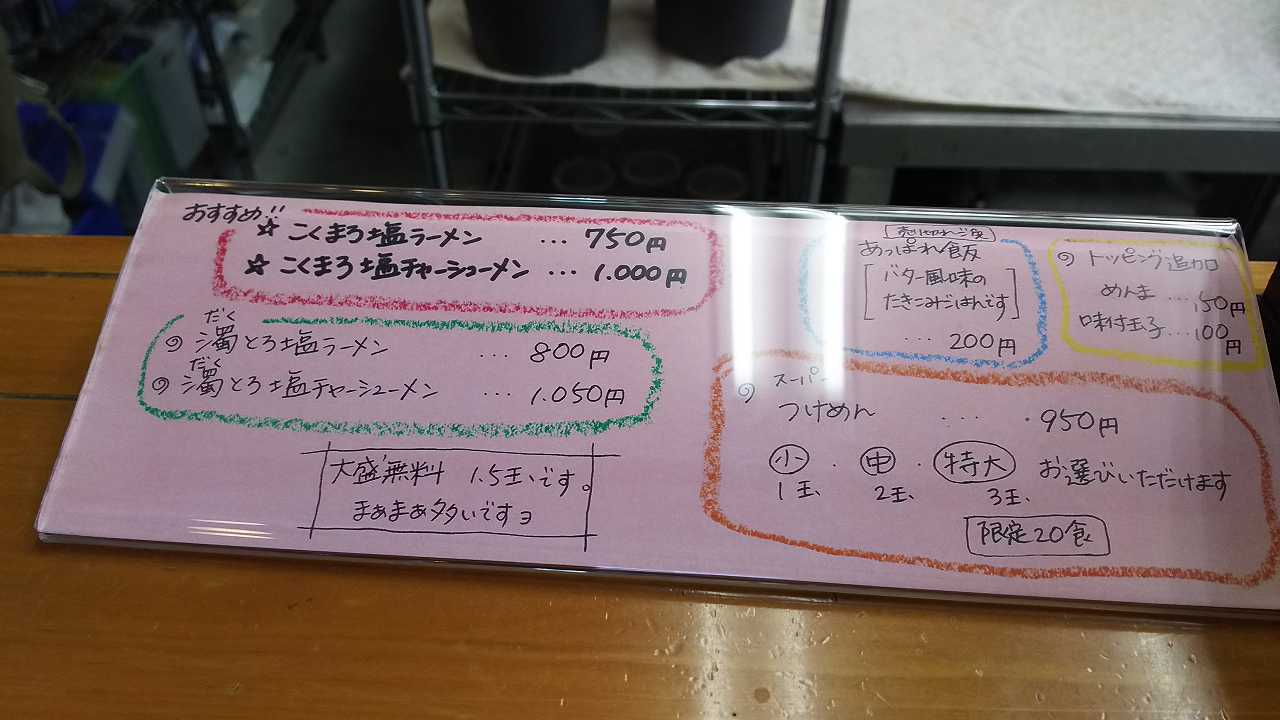 おすすめ!!
☆ こくまろ塩ラーメン ... 750円
☆ こくまろ塩チャーシューメン ... 1.000円
だく
濁とろ塩ラーメン ... 800円
だく
濁とろ塩チャーシューメン ... 1.050円
大盛無料 1.5玉です。
まぁまぁ多いですョ
売り切れご免
あっぱれ飯
[バター風味の
たきこみごはんです]
... 200円
トッピング追加
めんま ... 150円
味付玉子 ... 100円
スーパー
つけめん .... 950円
小 ・ 中 ・ 特大 お選びいただけます
1玉 2玉 3玉
限定20食